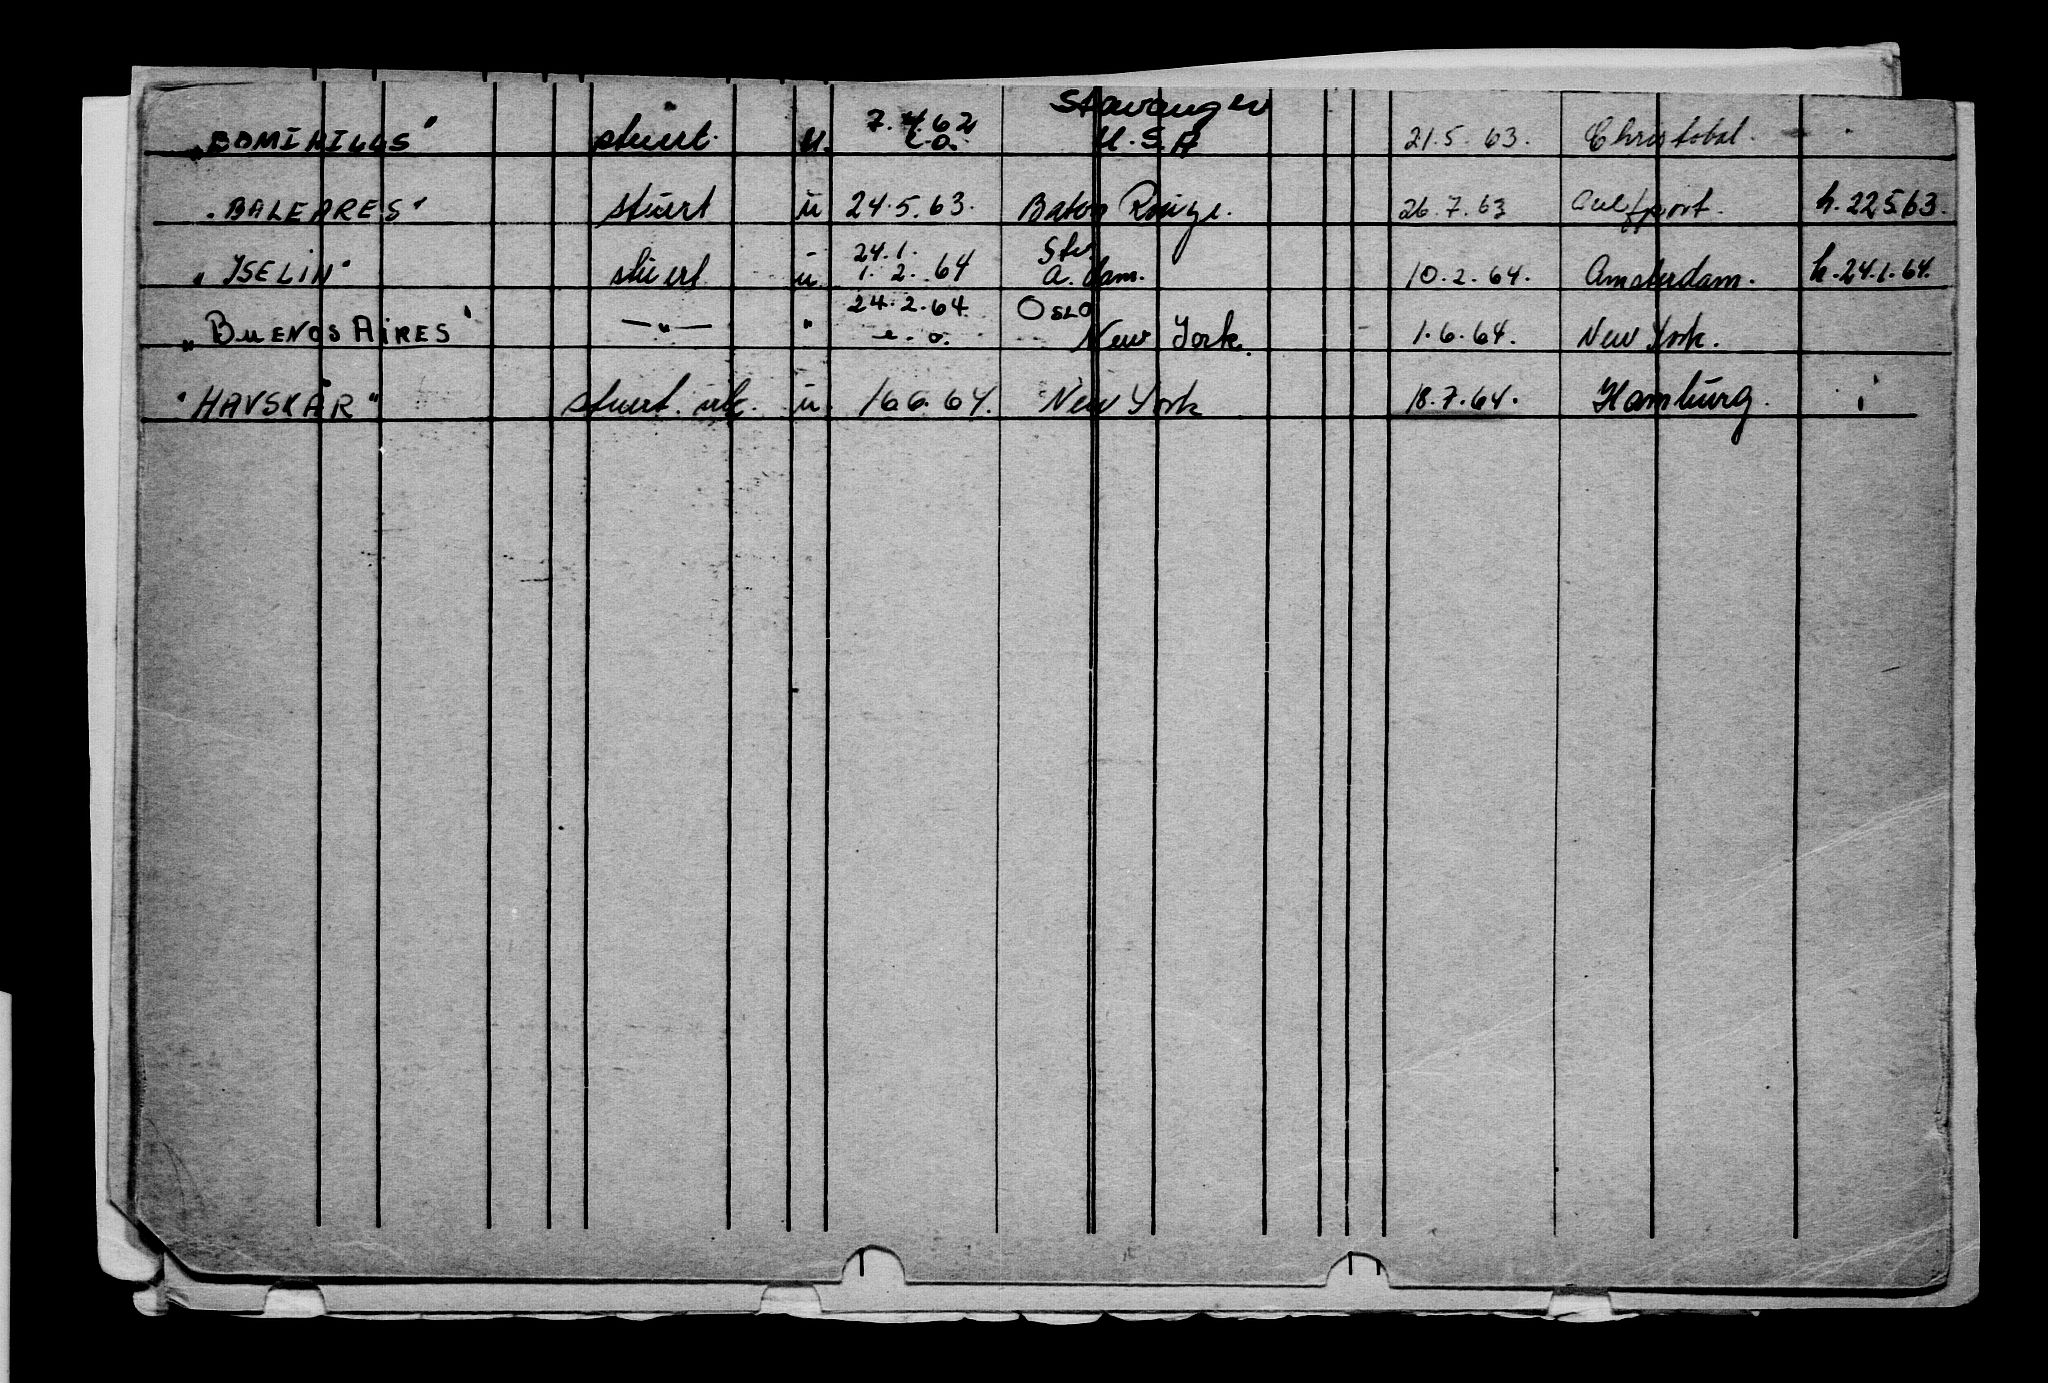 7.4.62 Stavanger
"DOMINIUS" stuert. u. e.o. U.S.A 21.5.63. Christobal.
"BALEARES" stuert u 24.5.63. Baton Rouge. 26.7.63 Gulfport. h. 22563.
24.1. Stv.
"ISELIN" stuert u 1.2.64 A.dam. 10.2.64. Amsterdam. h. 24.1.64.
24.2.64. OSLO
"BUENOS AIRES" —"— " e.o. New York. 1.6.64. New York.
"HAVSKÅR" stuert. u 16.6.64. New York 18.7.64. Hamburg.